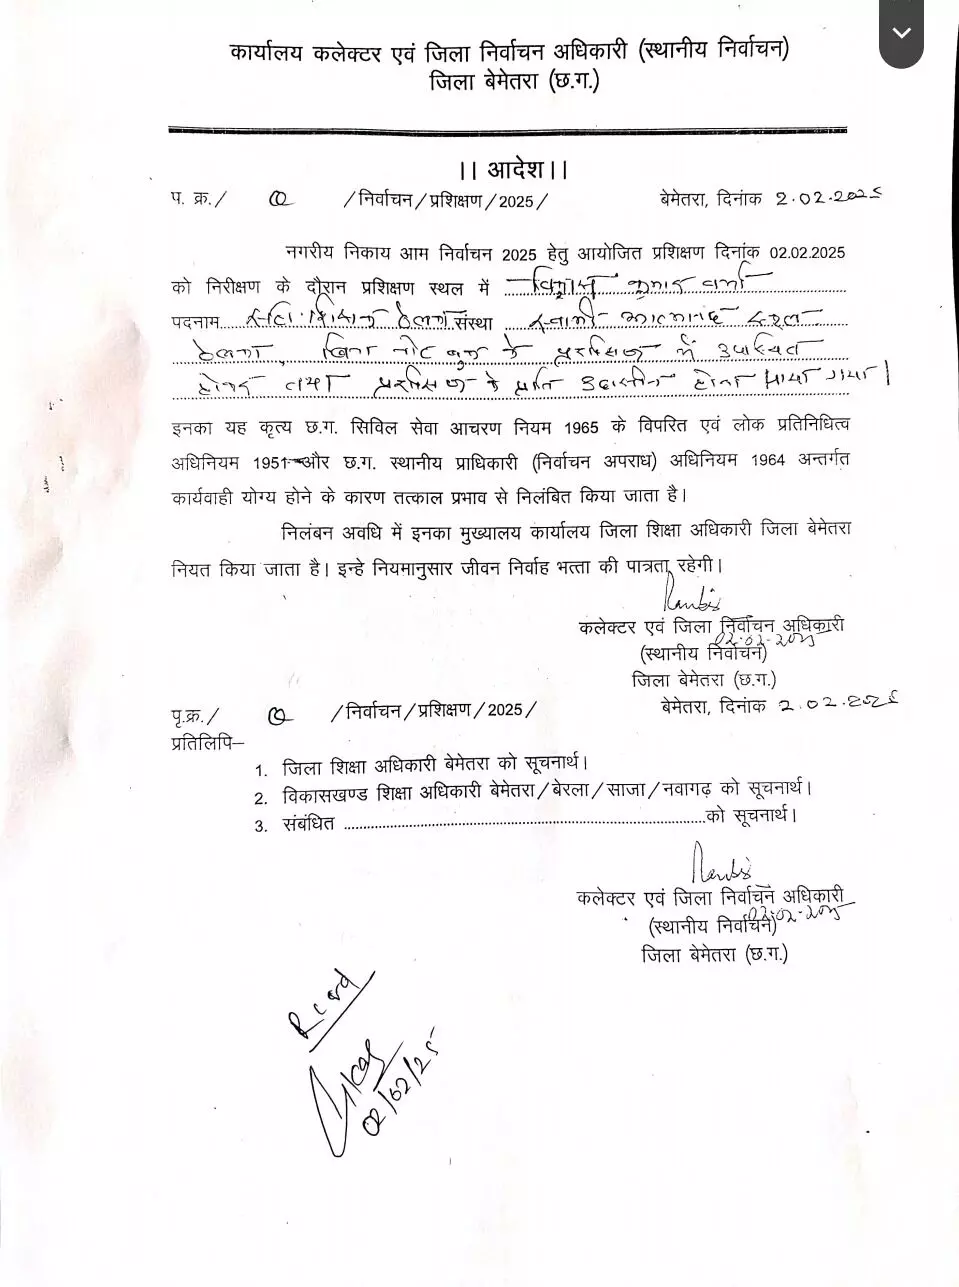 कार्यालय कलेक्टर एवं जिला निर्वाचन अधिकारी (स्थानीय निर्वाचन)
जिला बेमेतरा (छ.ग.)
।। आदेश।।
प. क्र./ /निर्वाचन/प्रशिक्षण/2025/ बेमेतरा, दिनांक 2.02.2025
नगरीय निकाय आम निर्वाचन 2025 हेतु आयोजित प्रशिक्षण दिनांक 02.02.2025
को निरीक्षण के दौरान प्रशिक्षण स्थल में कुमार वर्मा
पदनाम संस्था स्वामी आत्मानंद
बिना नोट बुक के में उपस्थित
होकर तथा के प्रति उदासीन होना पाया गया।
इनका यह कृत्य छ.ग. सिविल सेवा आचरण नियम 1965 के विपरित एवं लोक प्रतिनिधित्व
अधिनियम 1951 और छ.ग. स्थानीय प्राधिकारी (निर्वाचन अपराध) अधिनियम 1964 अन्तर्गत
कार्यवाही योग्य होने के कारण तत्काल प्रभाव से निलंबित किया जाता है।
निलंबन अवधि में इनका मुख्यालय कार्यालय जिला शिक्षा अधिकारी जिला बेमेतरा
नियत किया जाता है। इन्हे नियमानुसार जीवन निर्वाह भत्ता की पात्रता रहेगी।
कलेक्टर एवं जिला निर्वाचन अधिकारी
02.02.2025
(स्थानीय निर्वाचन)
जिला बेमेतरा (छ.ग.)
पृ.क्र./ /निर्वाचन/प्रशिक्षण/2025/ बेमेतरा, दिनांक 2.02.2025
प्रतिलिपि–
1. जिला शिक्षा अधिकारी बेमेतरा को सूचनार्थ।
2. विकासखण्ड शिक्षा अधिकारी बेमेतरा/बेरला/साजा/नवागढ़ को सूचनार्थ।
3. संबंधित ........................................ को सूचनार्थ।
कलेक्टर एवं जिला निर्वाचन अधिकारी
02.02.2025
(स्थानीय निर्वाचन)
जिला बेमेतरा (छ.ग.)
02/02/25